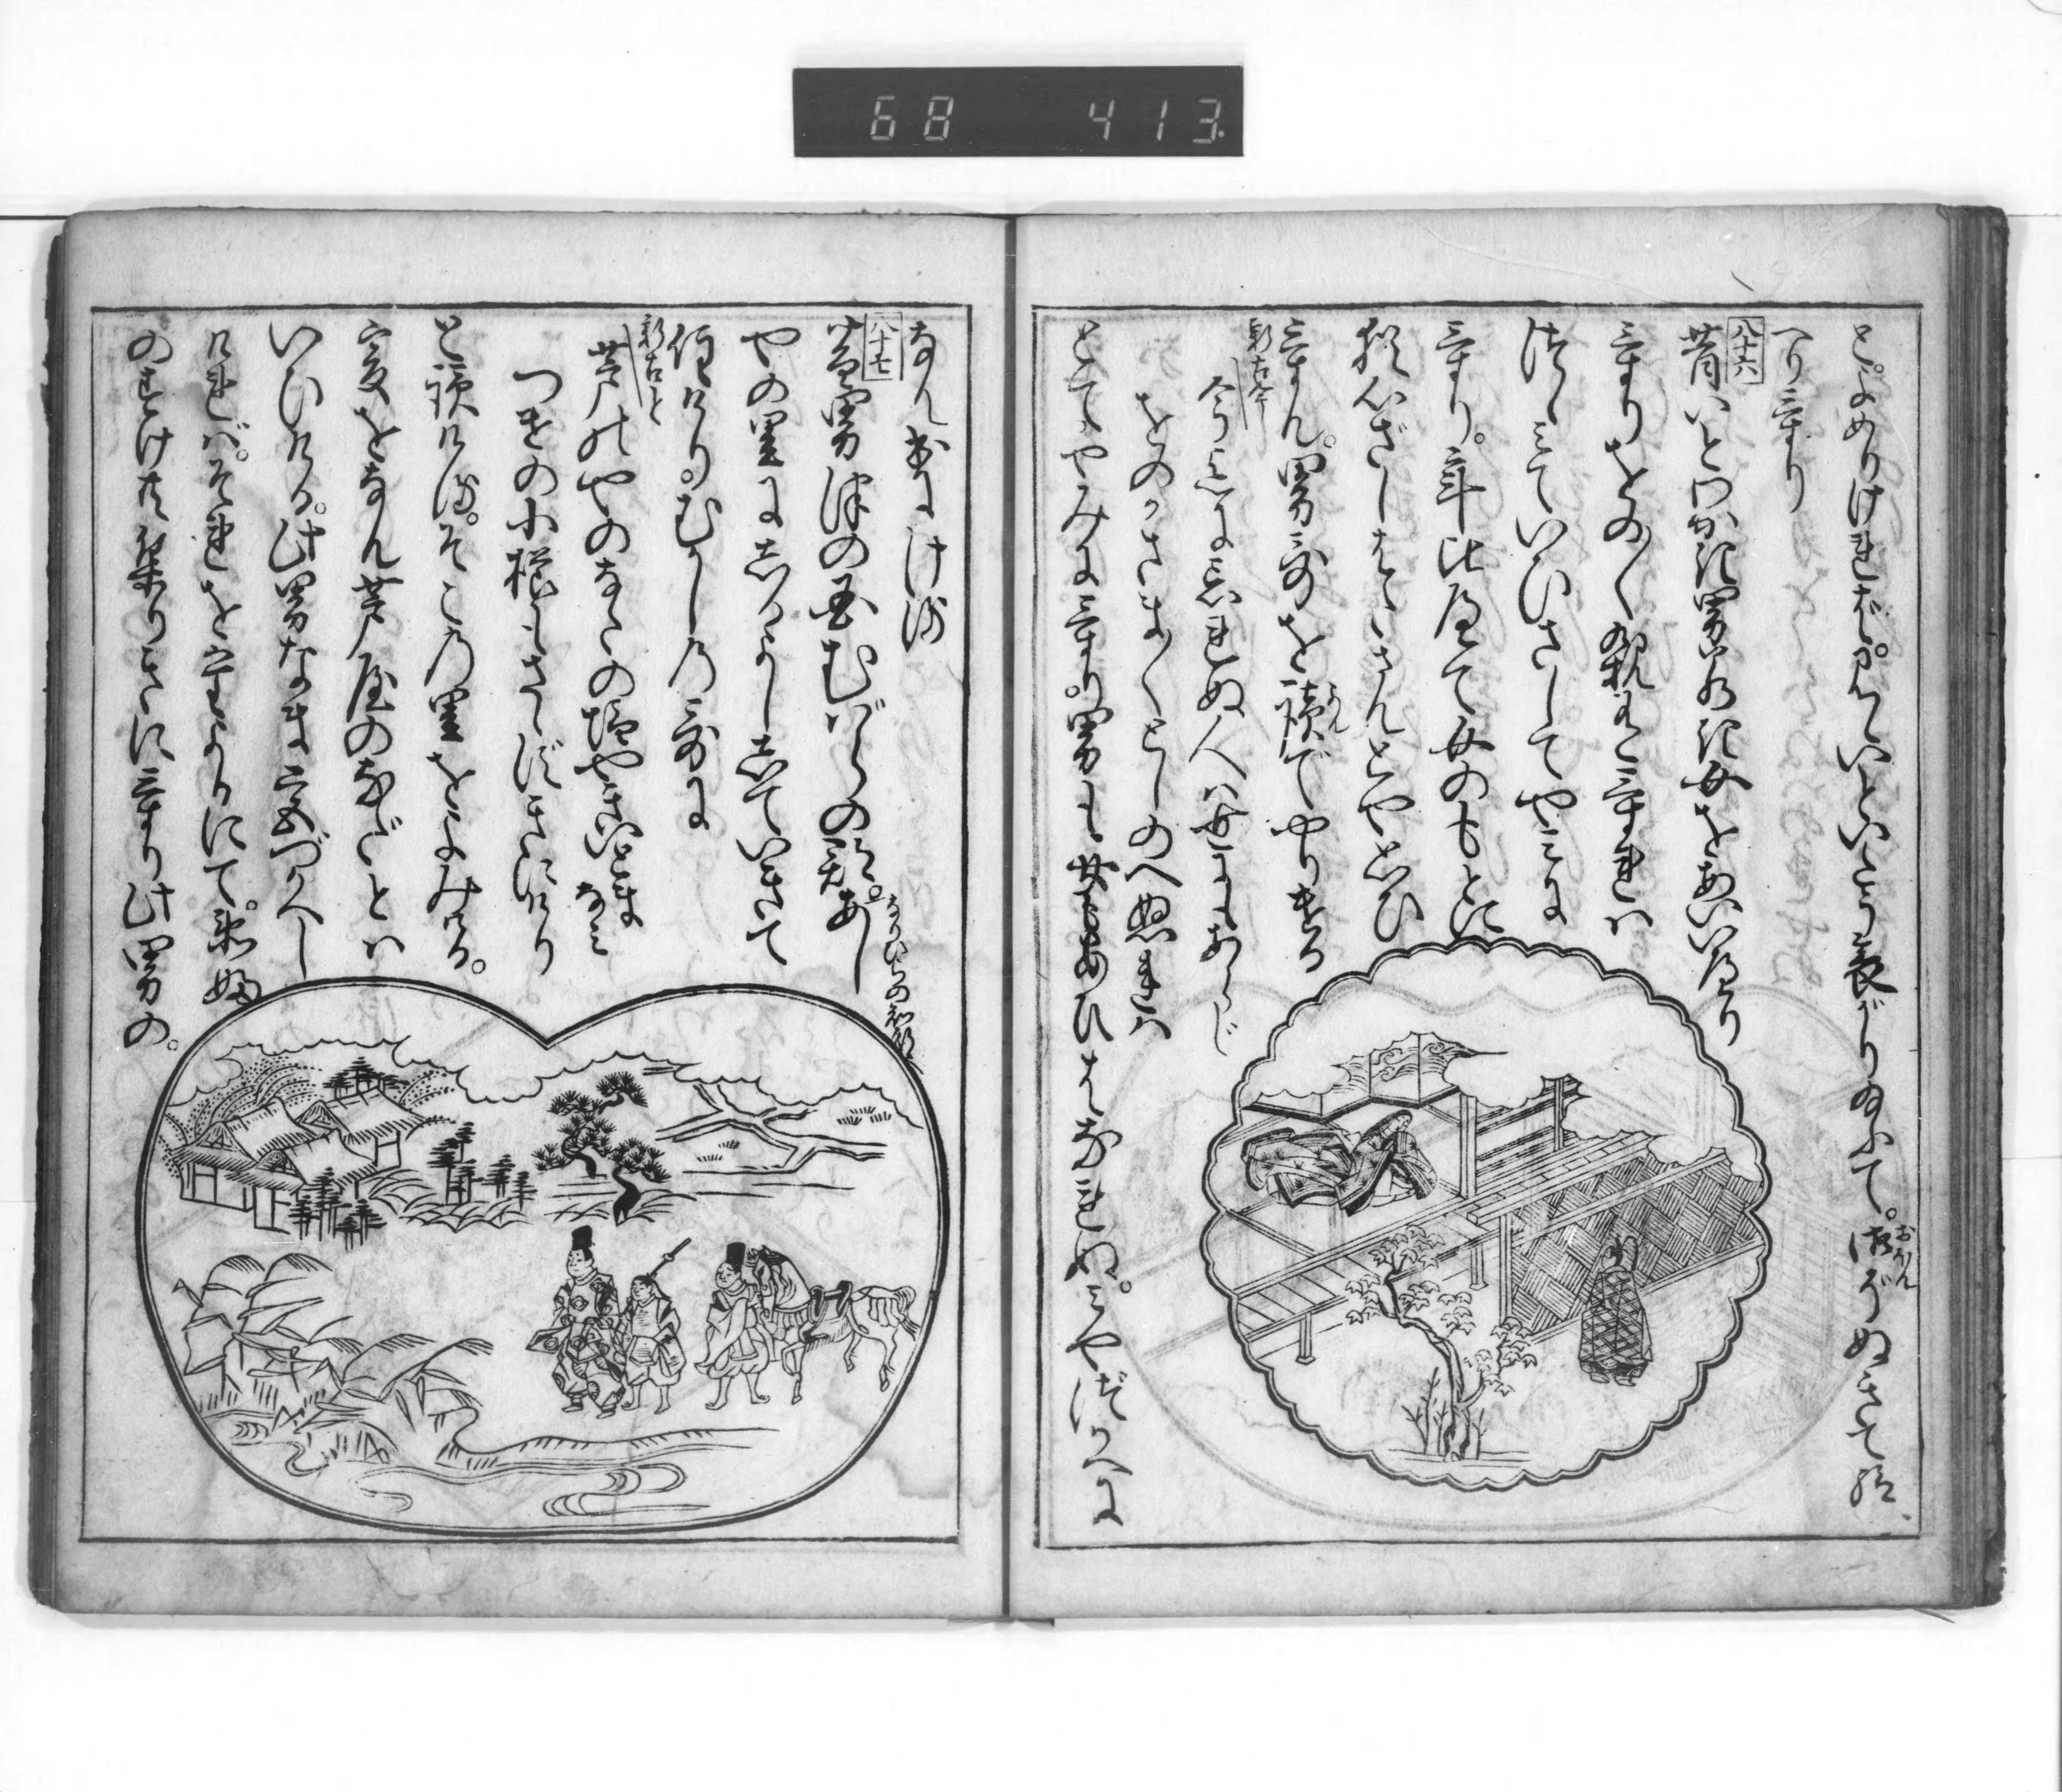 68 413
とよめりければみこいといたう哀がり給ふて御ぞぬぎて給
へりけり
八十六
昔いとわかき男わかき女をあひいへり
けりをの〱親有ければ
つゝみていひさしてやみに
けり年比へて女のもとに
猶心ざしはたさんとや思ひ
けん男哥を読でやりける
新古今
今迄に忘れぬ人は世にもあらじ
をのがさま〲としのへぬれば
とてやみにけり男も女もあひはなれぬみやづかへに
なん出にける
八十七
昔男津の国むばらの郡あし
なりひらの知所
やの里にしるよしゝていきて
住けりむかしの哥に
新古今
芦のやのなだの塩やきいとまなみ
つげの小櫛もさゝずきにけり
と読けるそこの里をよみける
爰をなん芦屋のなだとは
いひける此男なま宮づかへし
ければそれをたよりにて衛府
のすけ共集りきにけり此男の